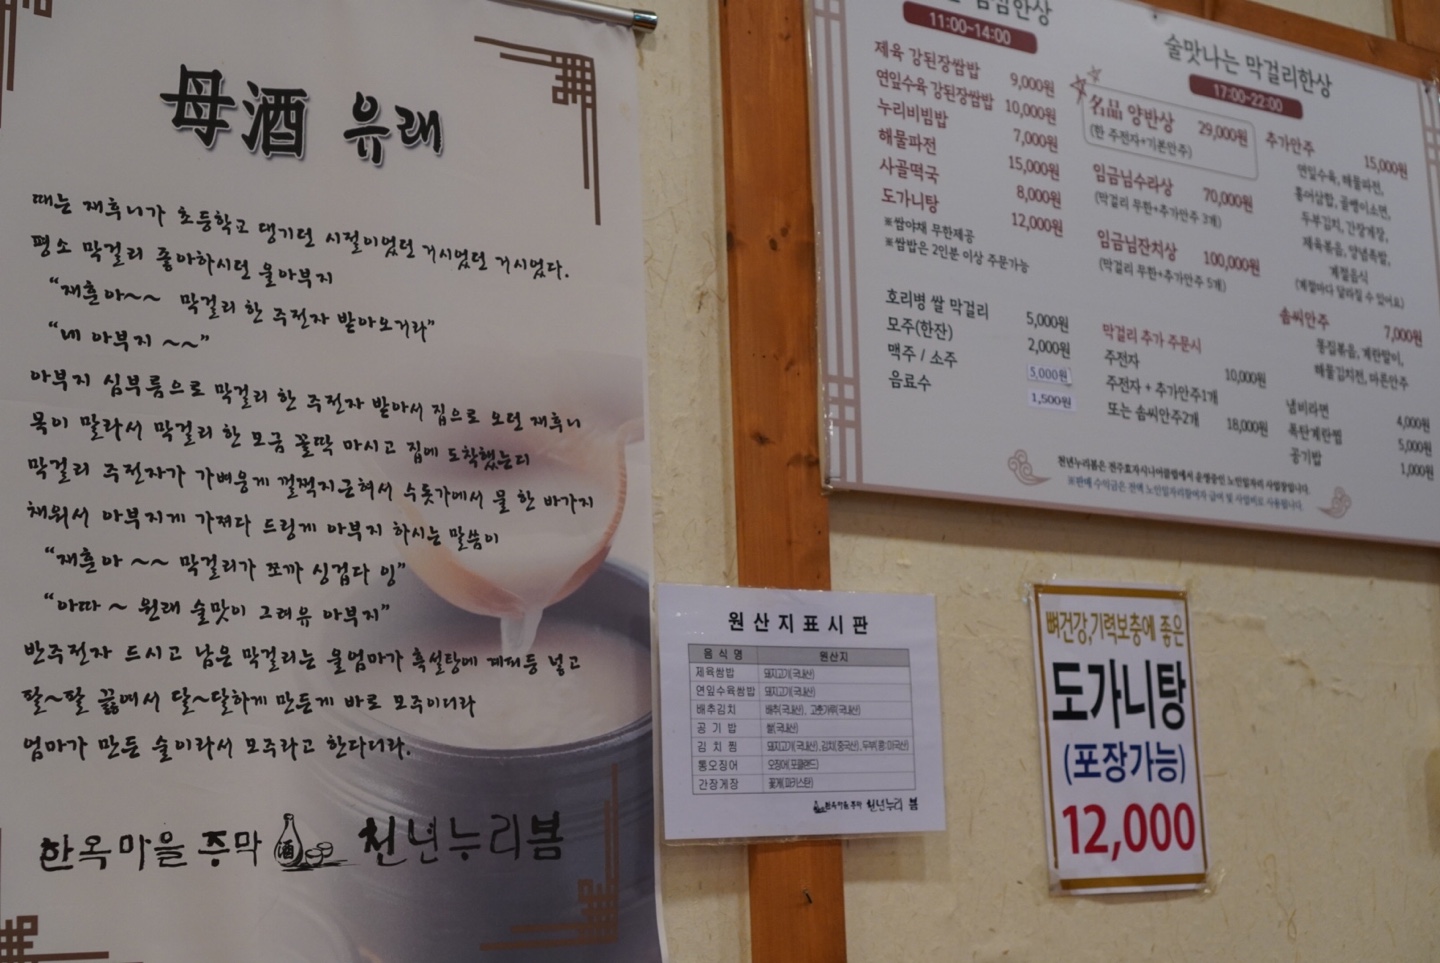 母酒 유래
때는 재후니가 초등학교 댕기던 시절이었던 거시었던 거시었다.
평소 막걸리 좋아하시던 울아부지
“재훈아~~ 막걸리 한 주전자 받아오거라”
“네 아부지 ~~”
아부지 심부름으로 막걸리 한 주전자 받아서 집으로 오던 재후니
목이 말라서 막걸리 한 모금 꼴딱 마시고 집에 도착했는디
막걸리 주전자가 가벼웅게 껄쩍지근혀서 수돗가에서 물 한 바가지
채워서 아부지게 가져다 드링게 아부지 하시는 말씀이
“재훈아 ~~ 막걸리가 쪼까 싱겁다 잉”
“아따 ~ 원래 술맛이 그려유 아부지”
반주전자 드시고 남은 막걸리는 울엄마가 흑설탕에 계피등 넣고
팔~팔 끓여서 달~달하게 만든게 바로 모주이더라
엄마가 만든 술이라서 모주라고 한다더라.
한옥마을 주막 酒 천년누리봄
점심한상
11:00~14:00
제육 강된장쌈밥 9,000원
연잎수육 강된장쌈밥 10,000원
누리비빔밥 7,000원
해물파전 15,000원
사골떡국 8,000원
도가니탕 12,000원
※쌈야채 무한제공
※쌈밥은 2인분 이상 주문가능
호리병 쌀 막걸리 5,000원
모주(한잔) 2,000원
맥주 / 소주 5,000원
음료수 1,500원
술맛나는 막걸리한상
17:00~22:00
名品 양반상 29,000원
(한 주전자+기본안주)
임금님수라상 70,000원
(막걸리 무한+추가안주 3개)
임금님잔치상 100,000원
(막걸리 무한+추가안주 5개)
막걸리 추가 주문시
주전자 10,000원
주전자 + 추가안주1개
또는 솜씨안주2개 18,000원
추가안주 15,000원
연잎수육, 해물파전,
홍어삼합, 골뱅이소면,
두부김치, 간장게장,
제육볶음, 양념족발,
계절음식
(계절마다 달라질 수 있어요)
솜씨안주 7,000원
똥집볶음, 계란말이,
해물김치전, 마른안주
냄비라면 4,000원
폭탄계란찜 5,000원
공기밥 1,000원
천년누리봄은 전주효자시니어클럽에서 운영중인 노인일자리 사업장입니다.
※판매 수익금은 전액 노인일자리참여자 급여 및 사업비로 사용됩니다.
원산지표시판
음식명 원산지
제육쌈밥 돼지고기(국내산)
연잎수육쌈밥 돼지고기(국내산)
배추김치 배추(국내산), 고춧가루(국내산)
공기밥 쌀(국내산)
김치찜 돼지고기(국내산), 김치(중국산), 두부(콩:미국산)
통오징어 오징어(포클랜드)
간장게장 꽃게(파키스탄)
한옥마을 주막 천년누리 봄
뼈건강,기력보충에 좋은
도가니탕
(포장가능)
12,000